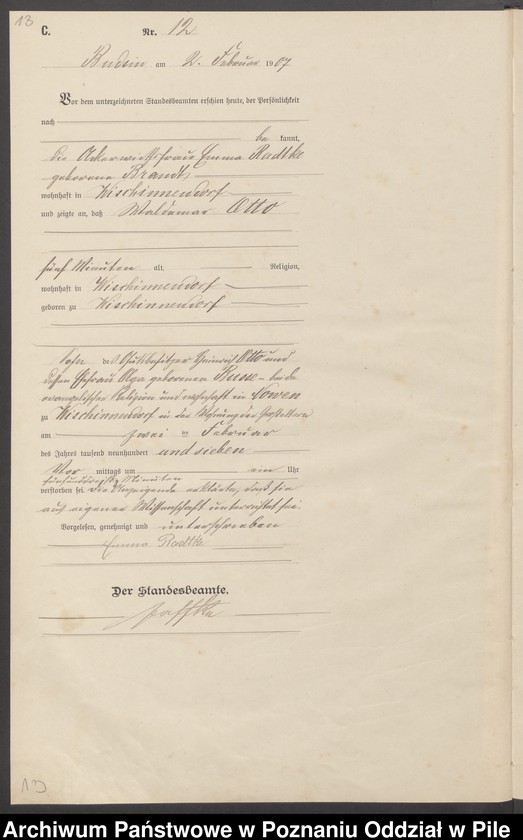 13
C. Nr. 12
Budsin am 2. Februar 1907
Vor dem unterzeichneten Standesbeamten erschien heute, der Persönlichkeit
nach
be kannt,
die Ackerwirthsfrau Emma Radtke
geborene Brandt
wohnhaft in Wischinnendorf
und zeigte an, daß Waldemar Otto
fünf Minuten alt, Religion,
wohnhaft in Wischinnendorf
geboren zu Wischinnendorf
Sohn des Gutsbesitzer Heinrich Otto und
dessen Ehefrau Olga geborenen Busse – beide
evangelischer Religion und wohnhaft in
zu Wischinnendorf in der Wohnung der
am zwei ten Februar
des Jahres tausend neunhundert und sieben
Vor mittags um ein Uhr
fünfunddreißig Minuten
verstorben sei. Die Anzeigende erklärte, daß sie
aus eigener Wissenschaft unterrichtet sei.
Vorgelesen, genehmigt und unterschrieben
Emma Radtke
Der Standesbeamte.
13
Archiwum Państwowe w Poznaniu Oddział w Pile